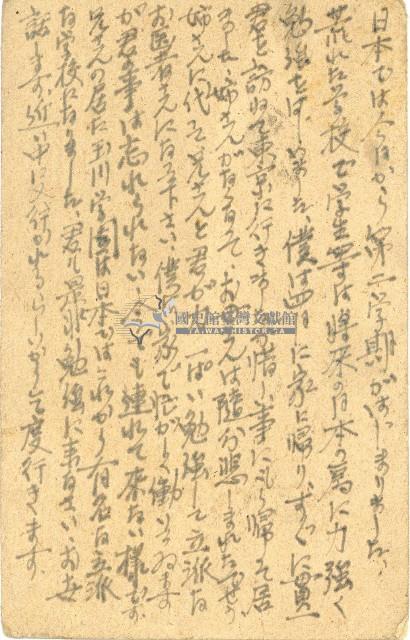 日本では今日から第二学期がはじまりました、
荒れた学校で学生等は将来の日本の為に力強く
勉強をはじめました、僕は四日に家に帰り、すぐに貫一
君を訪ねて東京に行きましたが惜しい事にもう帰って居
ました 姉さんがなくなって、お母さんは随分悲しまれたでせう
姉さんに代って兄さんと君がしっかり勉強して立派な
お医者さんになって下さい、僕は家で忙がしく働いてゐます
が君の事は忘れられない
兄さんの居た玉川学園は日本ではこれから有名な立派
な学校になりました、君も是非勉強に来なさい、お世
話します、近い中に又行かれるらしいから一度行きます、
國史館臺灣文獻館
TAIWAN HISTORICA